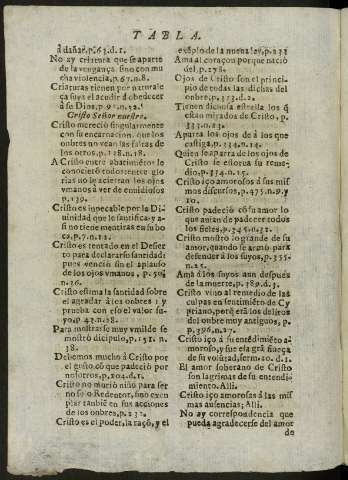 TABLA.
à dañar, p.63.d.1.
No ay criatura que se aparte
de la vengança sino con mu
cha violencia, p.67.n.8.
Criaturas tienen por natural e
ça suya el acudir à obedecer
à su Dios, p.92.n.32.
Cristo Señor nuestro.
Cristo mereciò singularmente
con su encarnacion, que los
onbres no vean las faltas de
los otros, p.128.n.18.
A Cristo entre abatimiẽtos le
conociero todo rente glo
rias no le acierran los ojos
vmanos à ver de envidiosos
p.139.
Cristo es inpecable por la Di
uinidad que le santifica y as
si no tiene mentiras en su bo
ca, p.7.n.12.
Cristo es tentado en el Desier
to para declarar su santidad;
pues venciò sin el aplauso
de los ojos vmanos, p.50.
n.26.
Cristo estima la santidad sobre
el agradar à los onbres; y
prueva con esto el valor su-
yo, p.43.n.28.
Para mostrarse muy vmilde se
mostrò dicipulo, p.151.n.
38.
Deliemos mucho à Cristo por
el gusto cõ que padeciò por
nosotros, p.204.d.1.
Cristo no muriò niño para ser
no solo Redentor, sino exen
plar tanbiẽ en sus acciones
de los onbres, p.232.
Cristo es el poder, la raçõ, y el
exẽplo de la nueua ley, p.233
Ama al coraçon por que naciò
del, p.278.
Ojos de Cristo son el princi-
pio de todas las dichas del
onbre, p.333.d.2.
Tienen dichosa estrella los q̃
estan mirados de Cristo, p.
333.n.13.
Aparta los ojos de à los que
castiga, p.334.n.14.
Quien se aparta de los ojos de
Cristo se estorua su reme-
dio, p.334.n.15.
Cristo iço amorosos à sus mis
mos discursos, p.475.n.9. y
10.
Cristo padeciò cõ su amor lo
que auian de padecer todos
los fieles, p.345.n.32.
Cristo mostrò lo grande de su
amor, quando se armò para
defender à los suyos, p.355.
n.25.
Ama à los suyos aun después
de la muerte, p.389.d.3.
Cristo vino al remedio de las
culpas en sentimiẽto de Cy
priano, porq̃ erã los delitos
del onbre muy antiguos, p.
p.396.n.17.
Cristo iço à su entẽdimiẽto a-
moroso, y fue ela grã fuerça
de su volũtad, serm.10.d.1.
El amor soberano de Cristo
son lagrimas de su entendi-
miento. Alli.
Cristo iço amorosas à las mis
mas ausencias; Alli.
No ay correspondencia que
pueda agradecerse del amor
de